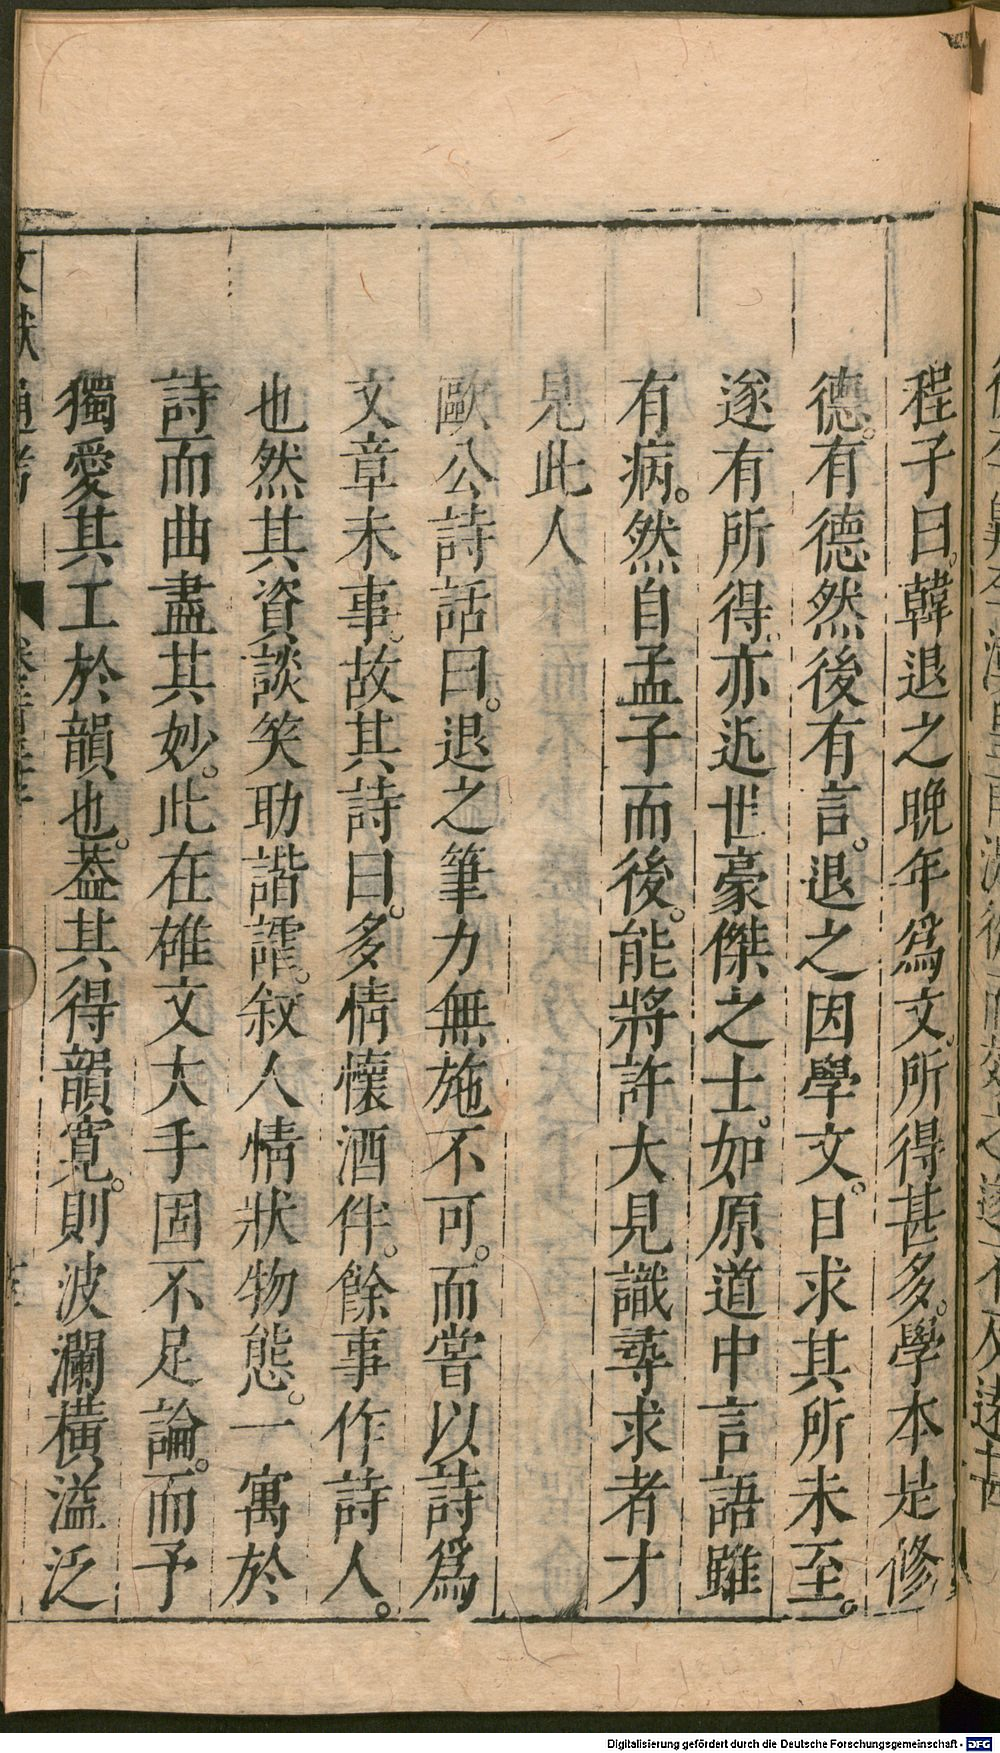 程子曰。韓退之晩年爲文。所得甚多。學本是修
德。有德然後有言。退之因學文。日求其所未至。
遂有所得。亦近世豪傑之士。如原道中言語雖
有病。然自孟子而後。能將許大見識尋求者才
見此人
歐公詩話曰。退之筆力無施不可。而嘗以詩爲
文章末事。故其詩曰。多情懷酒伴。餘事作詩人。
也然其資談笑助諧謔。叙人情狀物態。一寓於
詩而曲盡其妙。此在雄文大手固不足論。而予
獨愛其工於韻也。蓋其得韻寬。則波瀾橫溢泛
文獻通考
Digitalisierung gefördert durch die Deutsche Forschungsgemeinschaft - DFG